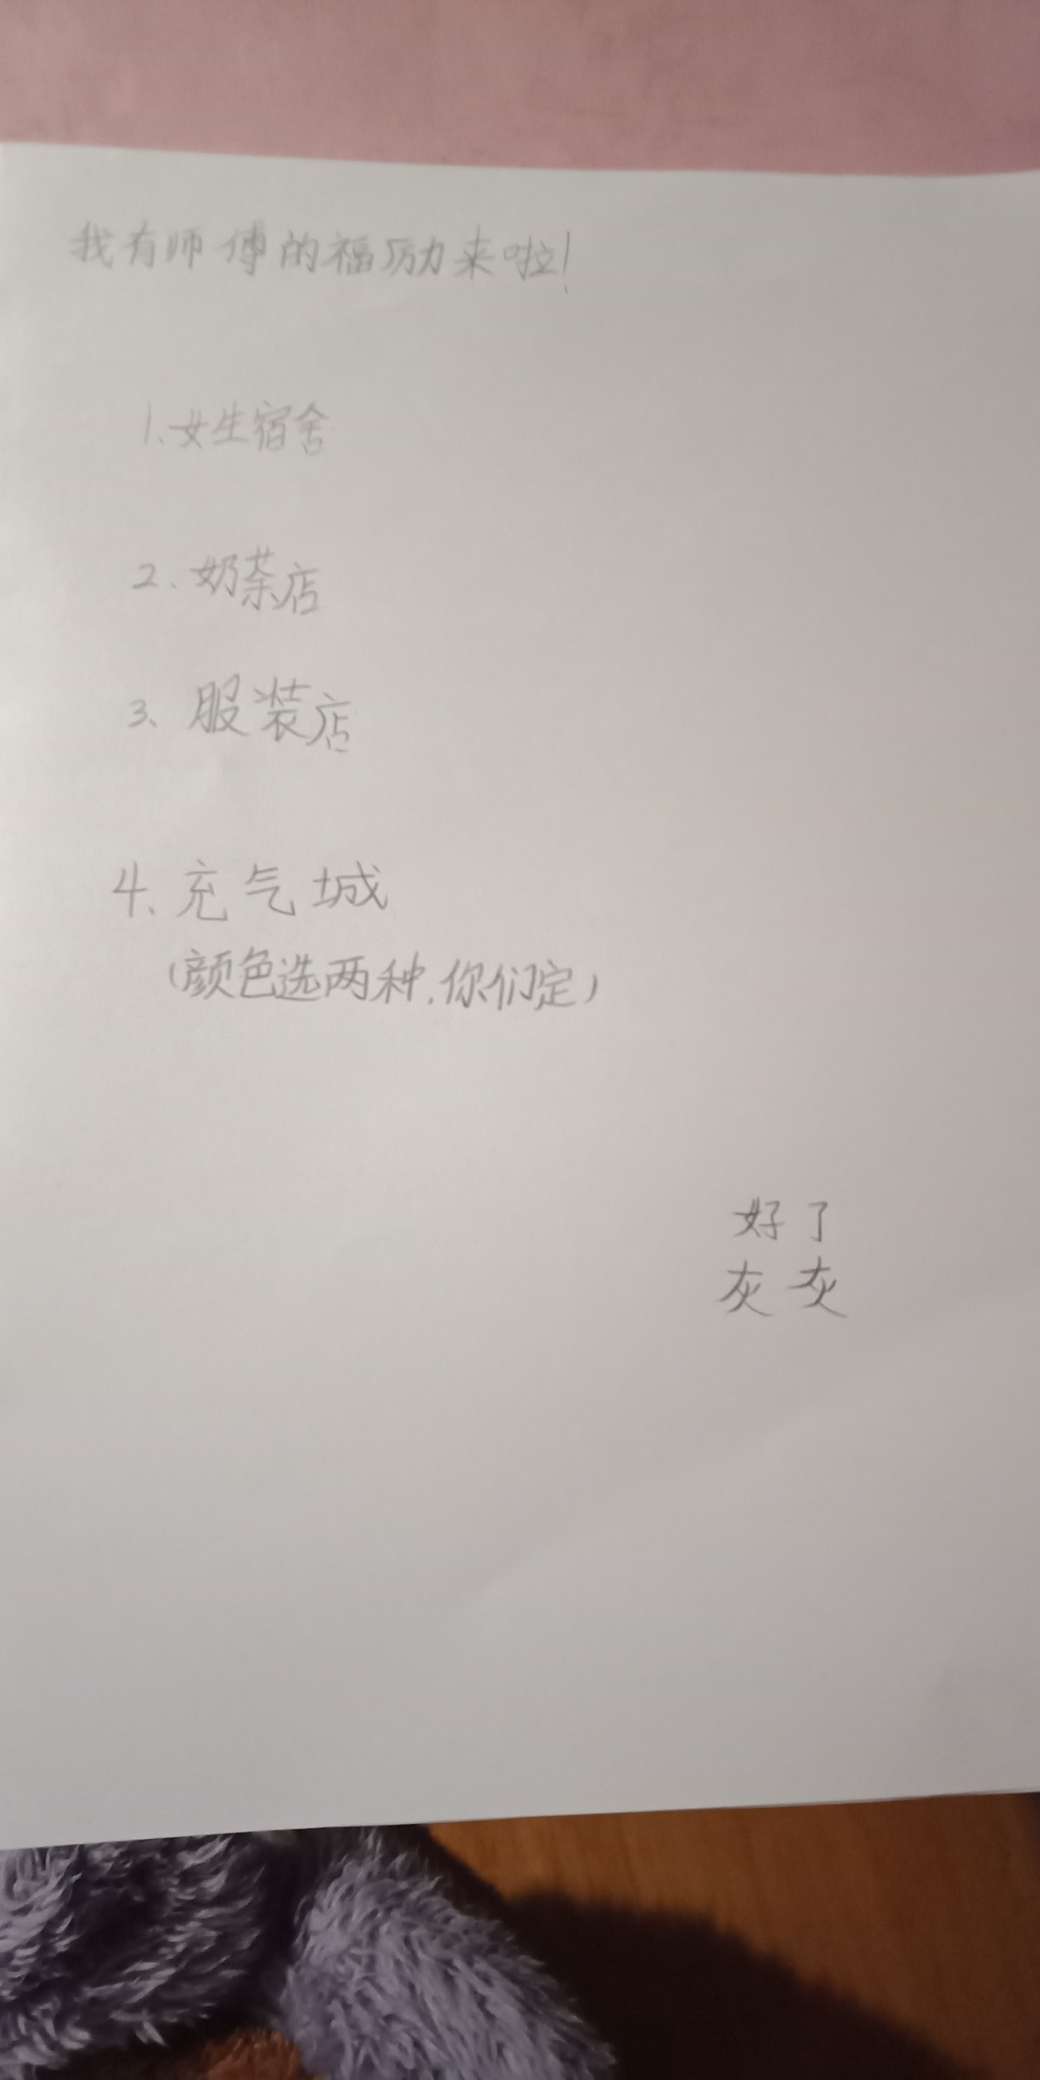 我有师傅的福励来啦!
1、女生宿舍
2、奶茶店
3、服装店
4、充气城
(颜色选两种,你们定)
好了
灰灰